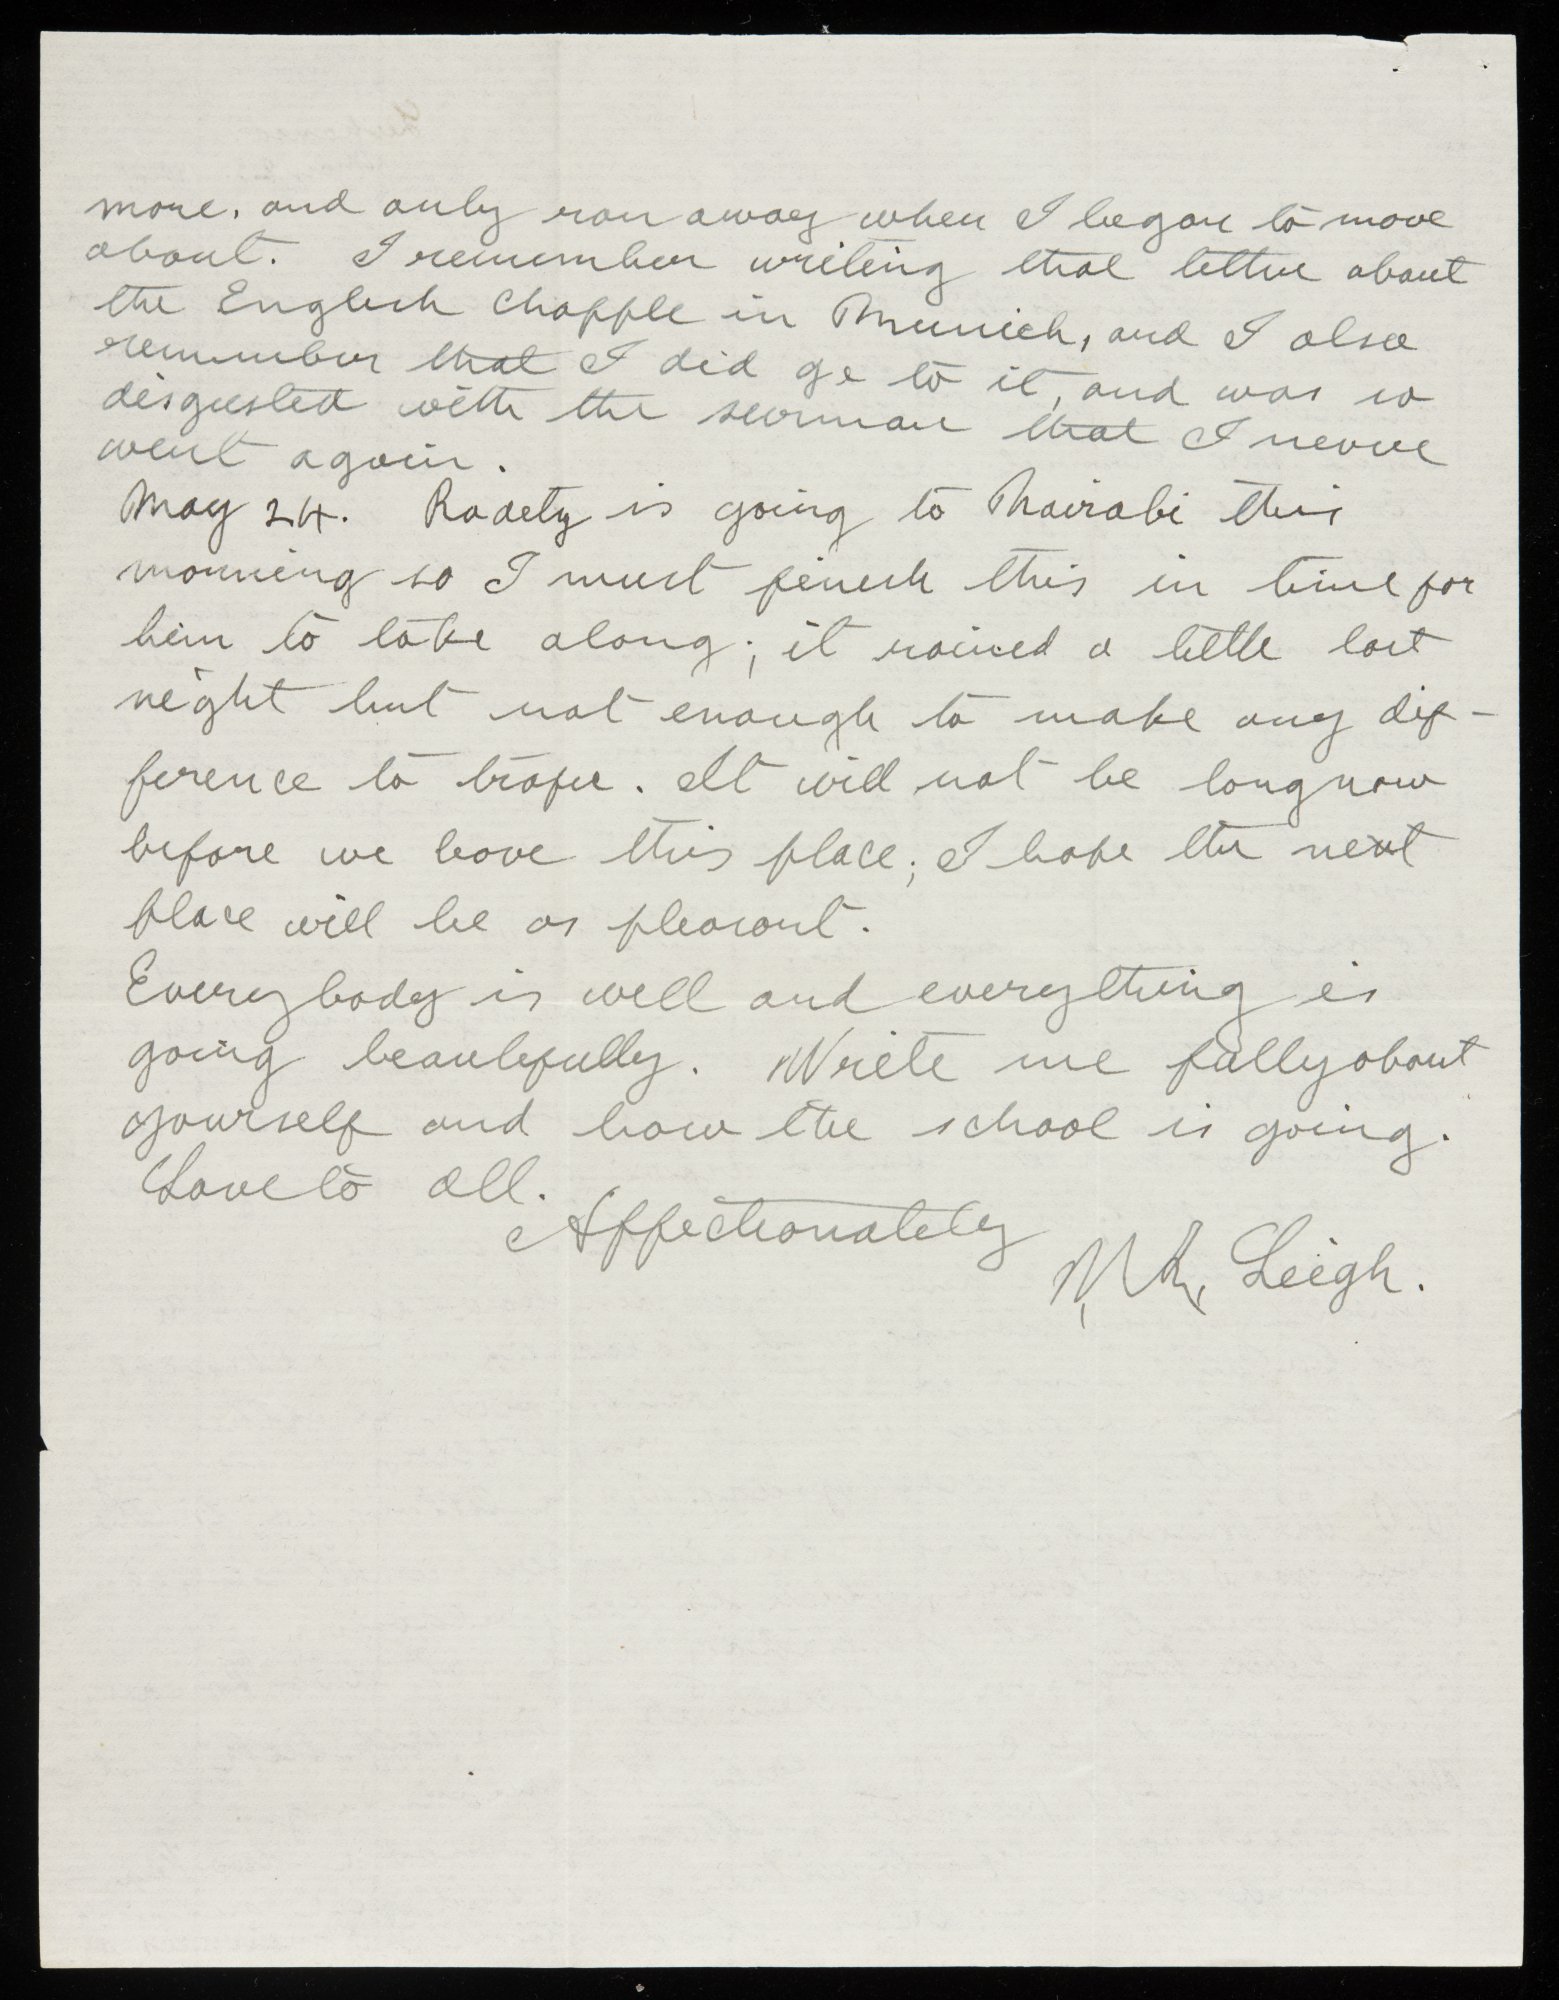 more, and only ran away when I began to move
about. I remember writing that letter about
the English Chapple in Munich, and I also
remember that I did go to it, and was so
disgusted with the sermon that I never
went again.
May 24. Raaety is going to Nairobi this
morning so I must finish this in time for
him to take along; it rained a little last
night but not enough to make any dif-
ference to trafic. It will not be long now
before we leave this place; I hope the next
place will be as pleasant.
Everybody is well and everything is
going beautifully. Write me fully about
yourself and how the school is going.
Love to all.
Affectionately
W. R. Leigh.